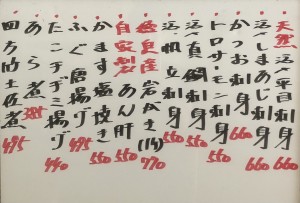 天然活〆平目刺身 660
活〆しまあじ刺身 660
かつお刺身 660
トロサーモン刺身 550
活〆真鯛刺身 550
活〆帆立刺身 550
岩がき(1ヶ) 770
自家製あん肝 550
かます塩焼き 550
ふぐ唐揚げ 495
たこチヂミ揚げ 440
あら煮 385
四方竹土佐煮 495